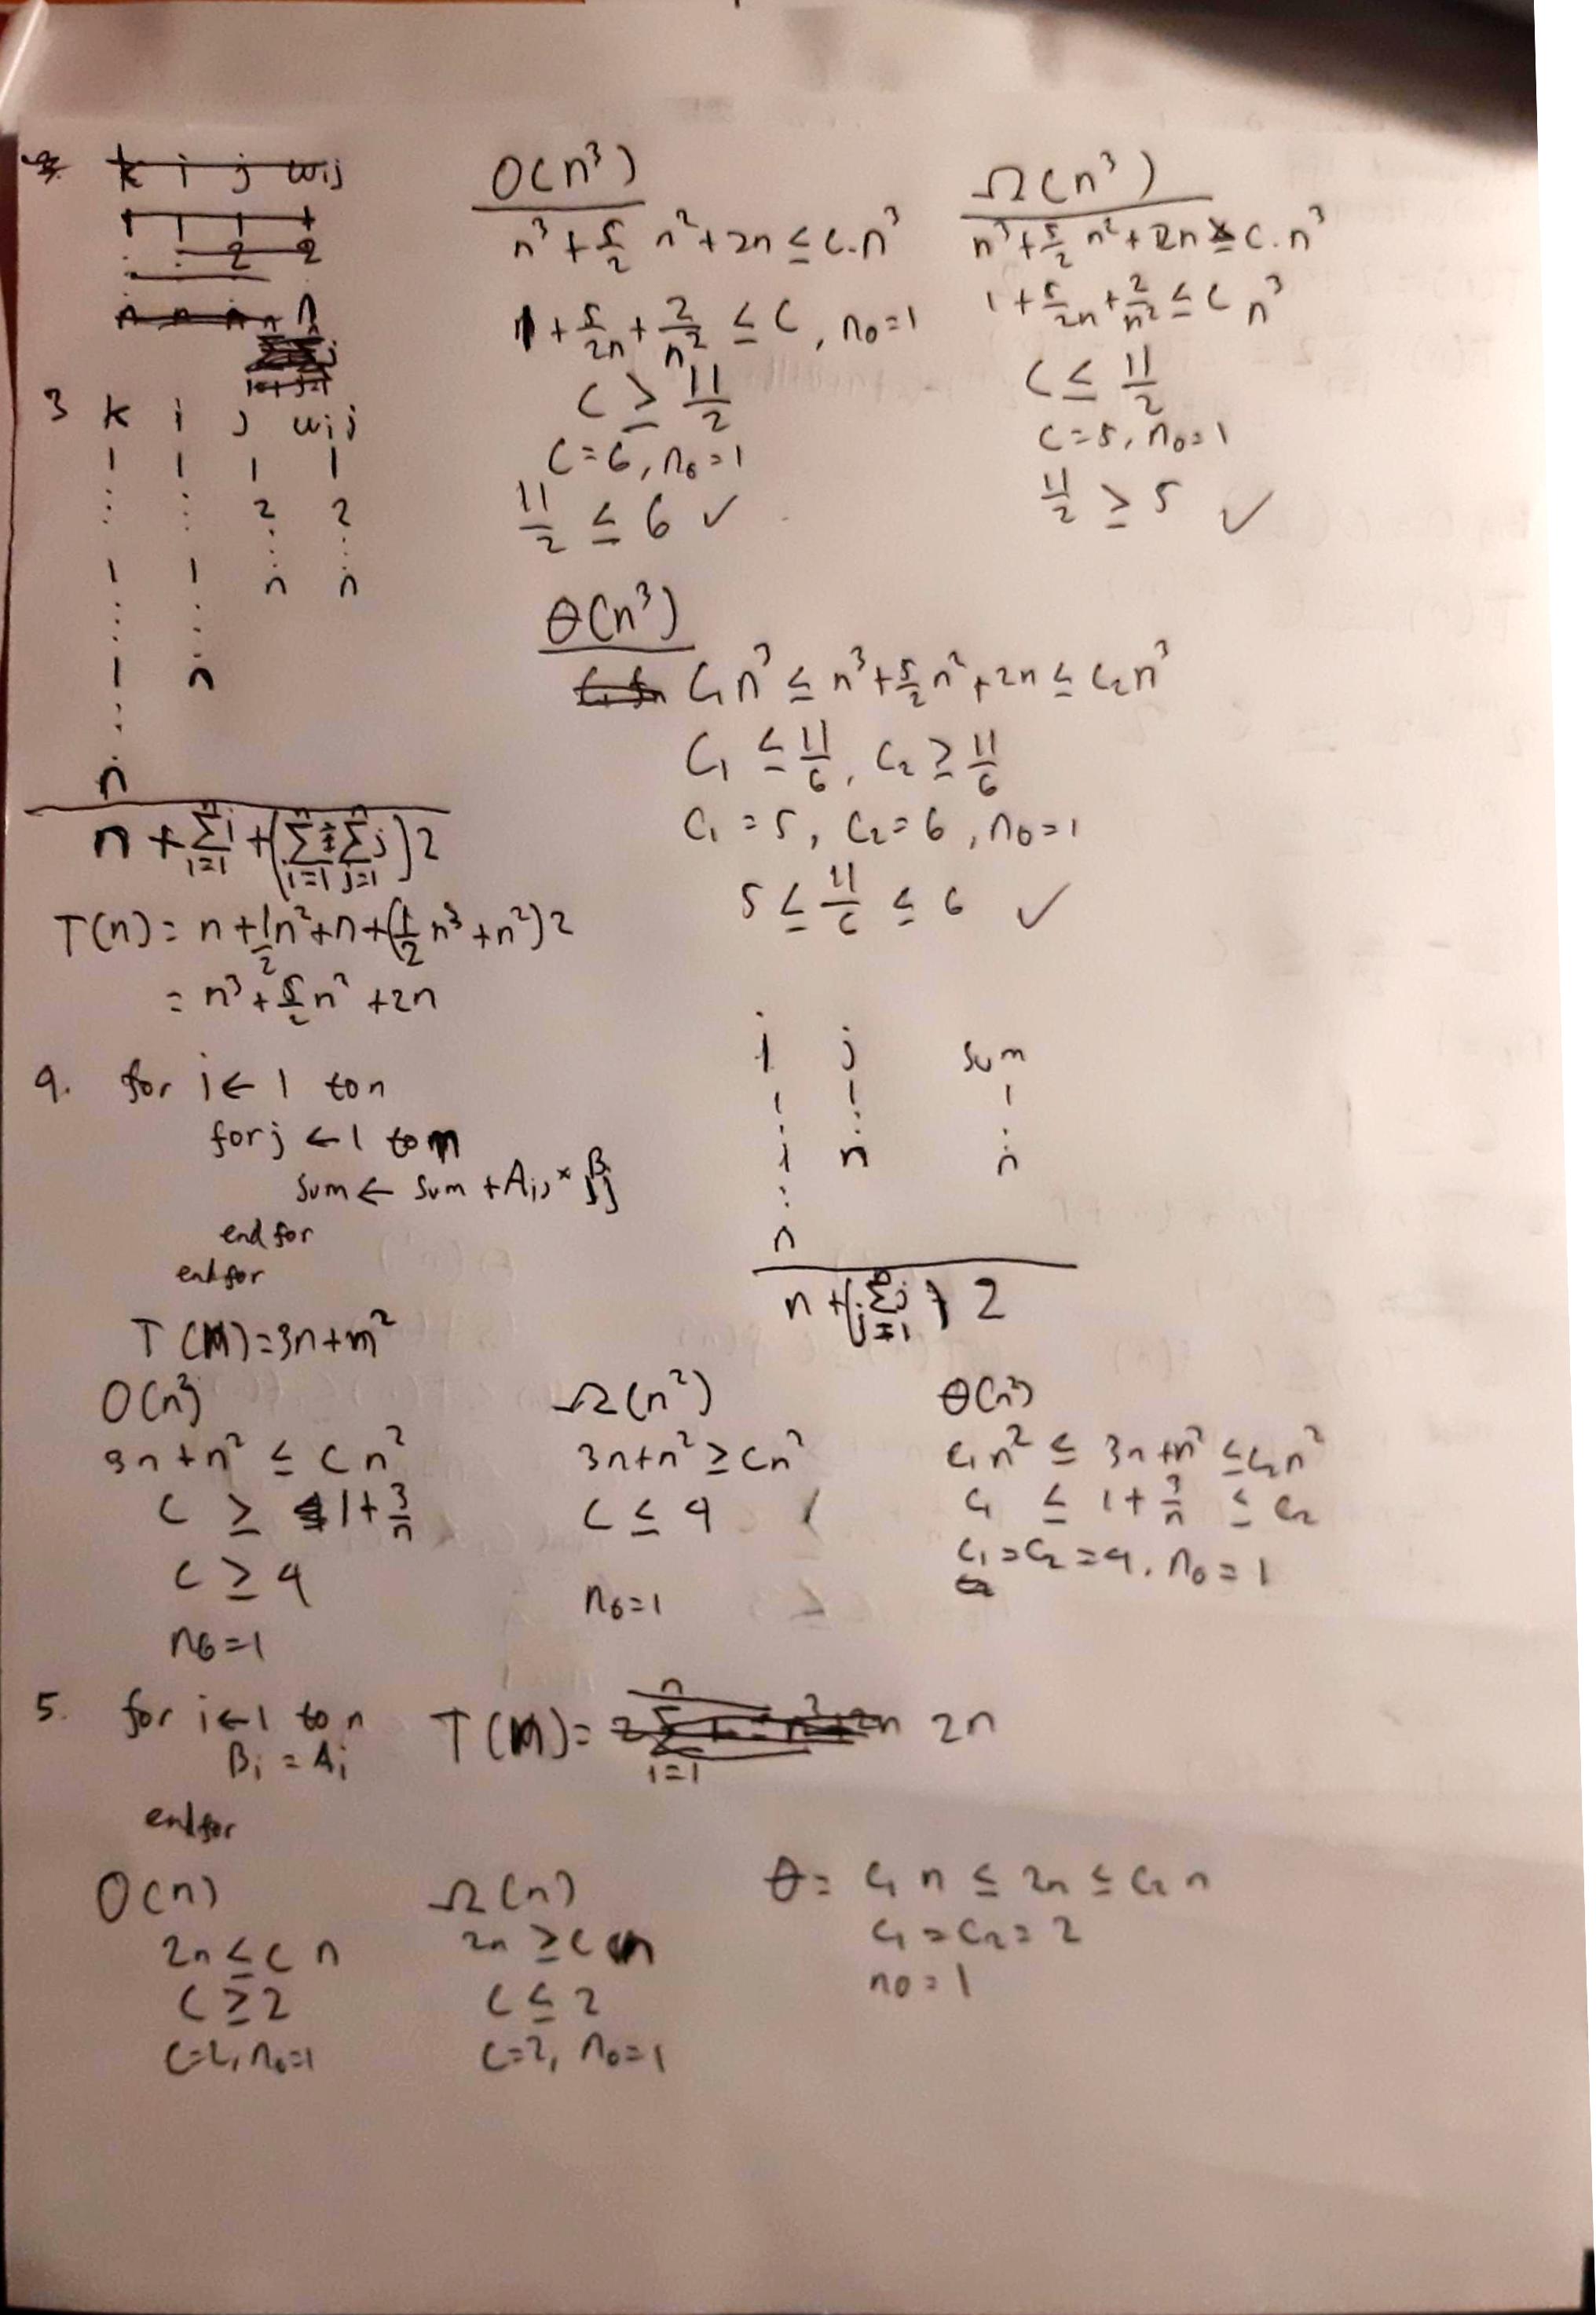 k i j wij
1 1 1 1
2 2
n n n n
3 k i j wij
1 1 1 1
⋮ ⋮ 2 2
⋮ ⋮
1 1 n n
⋮ ⋮
1 n
⋮
n
n + Σ_{i=1}^{n} i + (Σ_{i=1}^{n} Σ_{j=1}^{n} j) 2
T(n) = n + 1/2 n² + n + (1/2 n³ + n²) 2
= n³ + 5/2 n² + 2n
O(n³)
n³ + 5/2 n² + 2n ≤ c.n³
1 + 5/2n + 2/n² ≤ c, n₀=1
c ≥ 11/2
c=6, n₀=1
11/2 ≤ 6 ✓
Ω(n³)
n³ + 5/2 n² + 2n ≥ c.n³
1 + 5/2n + 2/n² ≤ c n³
c ≤ 11/2
c=5, n₀=1
11/2 ≥ 5 ✓
θ(n³)
c₁n³ ≤ n³ + 5/2 n² + 2n ≤ c₂n³
c₁ ≤ 11/6, c₂ ≥ 11/6
c₁ = 5, c₂ = 6, n₀=1
5 ≤ 11/6 ≤ 6 ✓
4. for i ← 1 to n
for j ← 1 to n
sum ← sum + Aij * Bij
end for
endfor
i j sum
1 1 1
⋮ ⋮ ⋮
1 n n
⋮
n
n + (Σ_{j=1}^{n} j) 2
T(n) = 3n + n²
O(n²)
3n + n² ≤ c n²
c ≥ 1 + 3/n
c ≥ 4
n₀=1
Ω(n²)
3n + n² ≥ cn²
c ≤ 4
n₀=1
θ(n²)
c₁n² ≤ 3n + n² ≤ c₂n²
c₁ ≤ 1 + 3/n ≤ c₂
c₁ = c₂ = 4, n₀ = 1
5. for i ← 1 to n T(n) = 2n
Bi = Ai
endfor
O(n)
2n ≤ c n
c ≥ 2
c=2, n₀=1
Ω(n)
2n ≥ c n
c ≤ 2
c=2, n₀=1
θ = c₁ n ≤ 2n ≤ c₂ n
c₁ = c₂ = 2
n₀ = 1